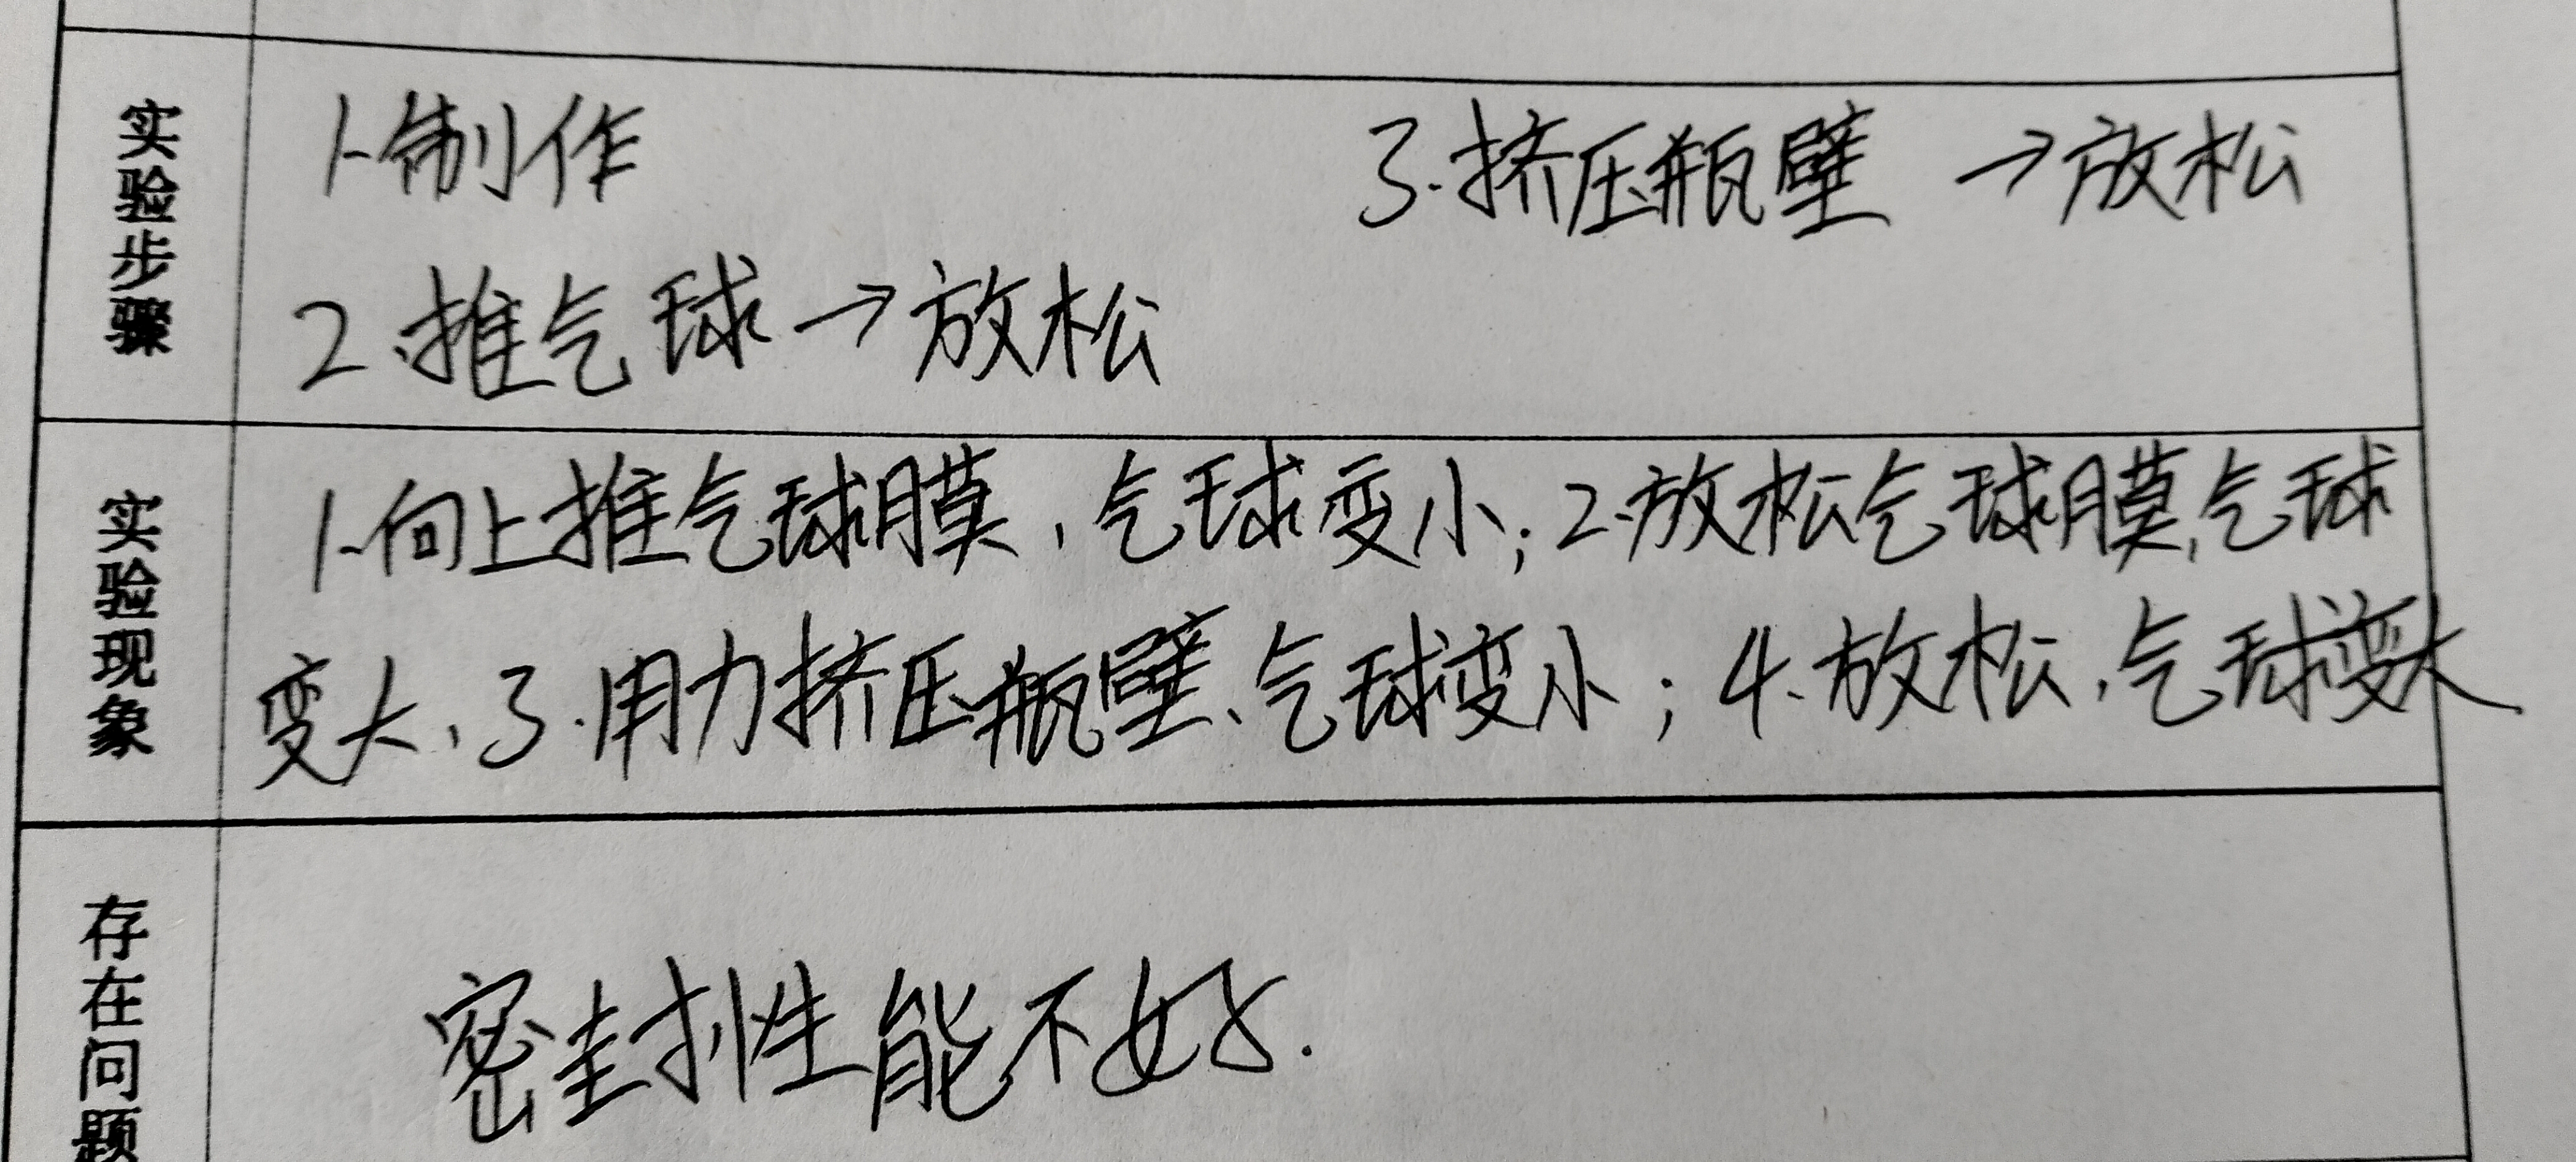 实验步骤
1.制作
3.挤压瓶壁 →放松
2.推气球→放松
实验现象
1.向上推气球膜,气球变小;2.放松气球膜,气球
变大、3.用力挤压瓶壁、气球变小;4.放松,气球变大
存在问题
密封性能不好.